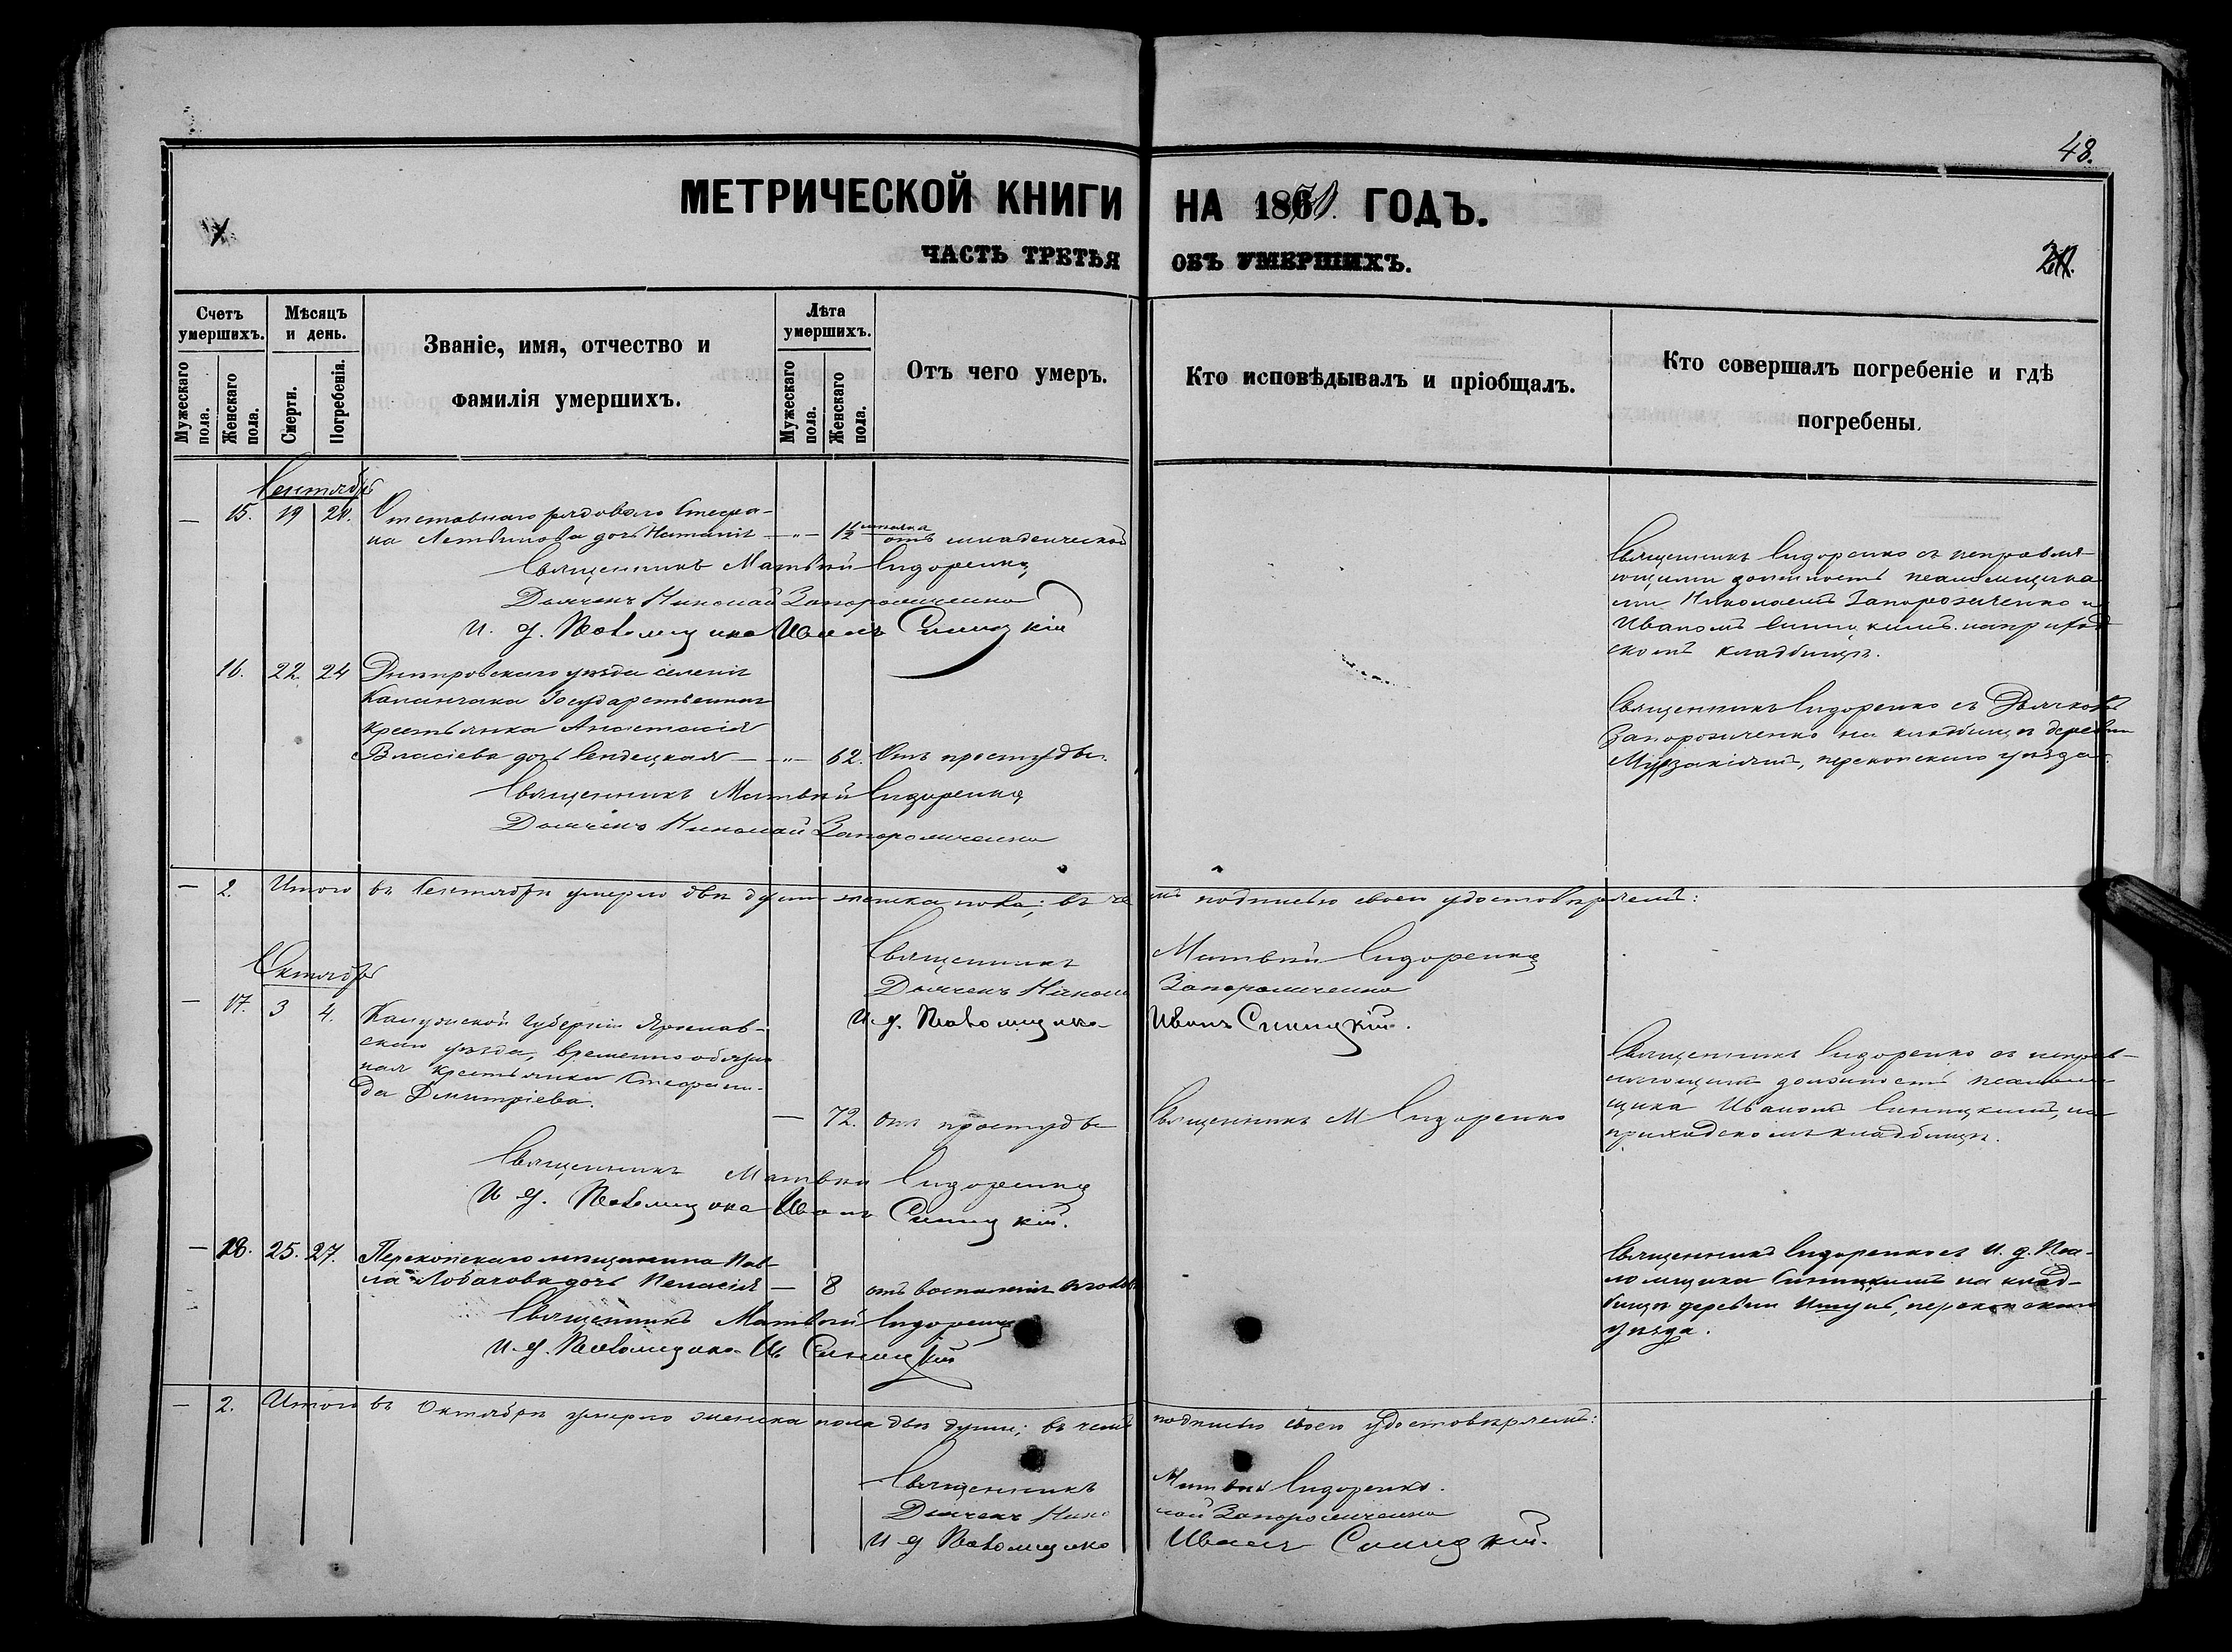 48.
МЕТРИЧЕСКОЙ КНИГИ НА 1870. ГОДЪ.
ЧАСТЬ ТРЕТЬЯ ОБЪ УМЕРШИХЪ.
Счетъ умершихъ.
Мужескаго пола.
Женскаго пола.
Мѣсяцъ и день.
Смерти.
Погребенія.
Званіе, имя, отчество и
фамилія умершихъ.
Лѣта умершихъ.
Мужескаго пола.
Женскаго пола.
Отъ чего умеръ.
Кто исповѣдывалъ и пріобщалъ.
Кто совершалъ погребеніе и гдѣ
погребены.
Сентябрь
— 15. 19 21. Отставнаго рядоваго Стефа-
на Летвинова дочь Наталія — „ — 1½ отъ младенческой
Священникъ Матвѣй Сидоренко
Дьячекъ Николай Запорожченко
И. д. Псаломщика Иванъ Синицкій
Священникъ Сидоренко съ исправля-
ющими должность псаломщика
ми Николаемъ Запорожченко и
Иваномъ Синицкимъ на приход
скомъ кладбищѣ.
16. 22. 24 Днѣпровскаго уѣзда селенія
Каланчака Государственная
крестьянка Анастасія
Власіева дочь Сендецкая — „ — 62. Отъ простуды.
Священникъ Матвѣй Сидоренко
Дьячекъ Николай Запорожченко
Священникъ Сидоренко съ Дьячкомъ
Запорожченко на кладбищѣ деревни
перекопскаго уѣзда.
— 2. Итого въ Сентябрѣ умерло двѣ души женска пола; въ чемъ подписью своею удостовѣряемъ:
Священникъ Матвѣй Сидоренко
Дьячекъ Николай Запорожченко
И. д. Псаломщика Иванъ Синицкій.
Октябрь
— 17. 3 4. Калужской Губерніи Ярослав-
скаго уѣзда, временно обязан
ная крестьянка Стефани-
да Димитріева.
— 72. отъ простуды Священникъ М Сидоренко
Священникъ Сидоренко съ исправ-
ляющимъ должность псалом-
щика Иваномъ Синицкимъ, на
приходскомъ кладбищѣ.
Священникъ Матвѣй Сидоренко
И д. Псаломщика Иванъ Синицкій.
— 18. 25. 27. Перекопскаго мѣщанина Пав-
ла Лобачова дочь Пелагія — 8 отъ воспаленія
Священникъ Матвѣй Сидоренко
И. д. Псаломщика Ив Синицкій
Священникъ Сидоренко съ И. д. Пса-
ломщика Синицкимъ на клад-
бищѣ деревни Ишунь, перекопскаго
уѣзда.
— 2. Итого въ Октябрѣ умерло женска пола двѣ души; въ чемъ подписью своею удостовѣряемъ:
Священникъ Матвѣй Сидоренко.
Дьячекъ Николай Запорожченко
И д Псаломщика Иванъ Синицкій.